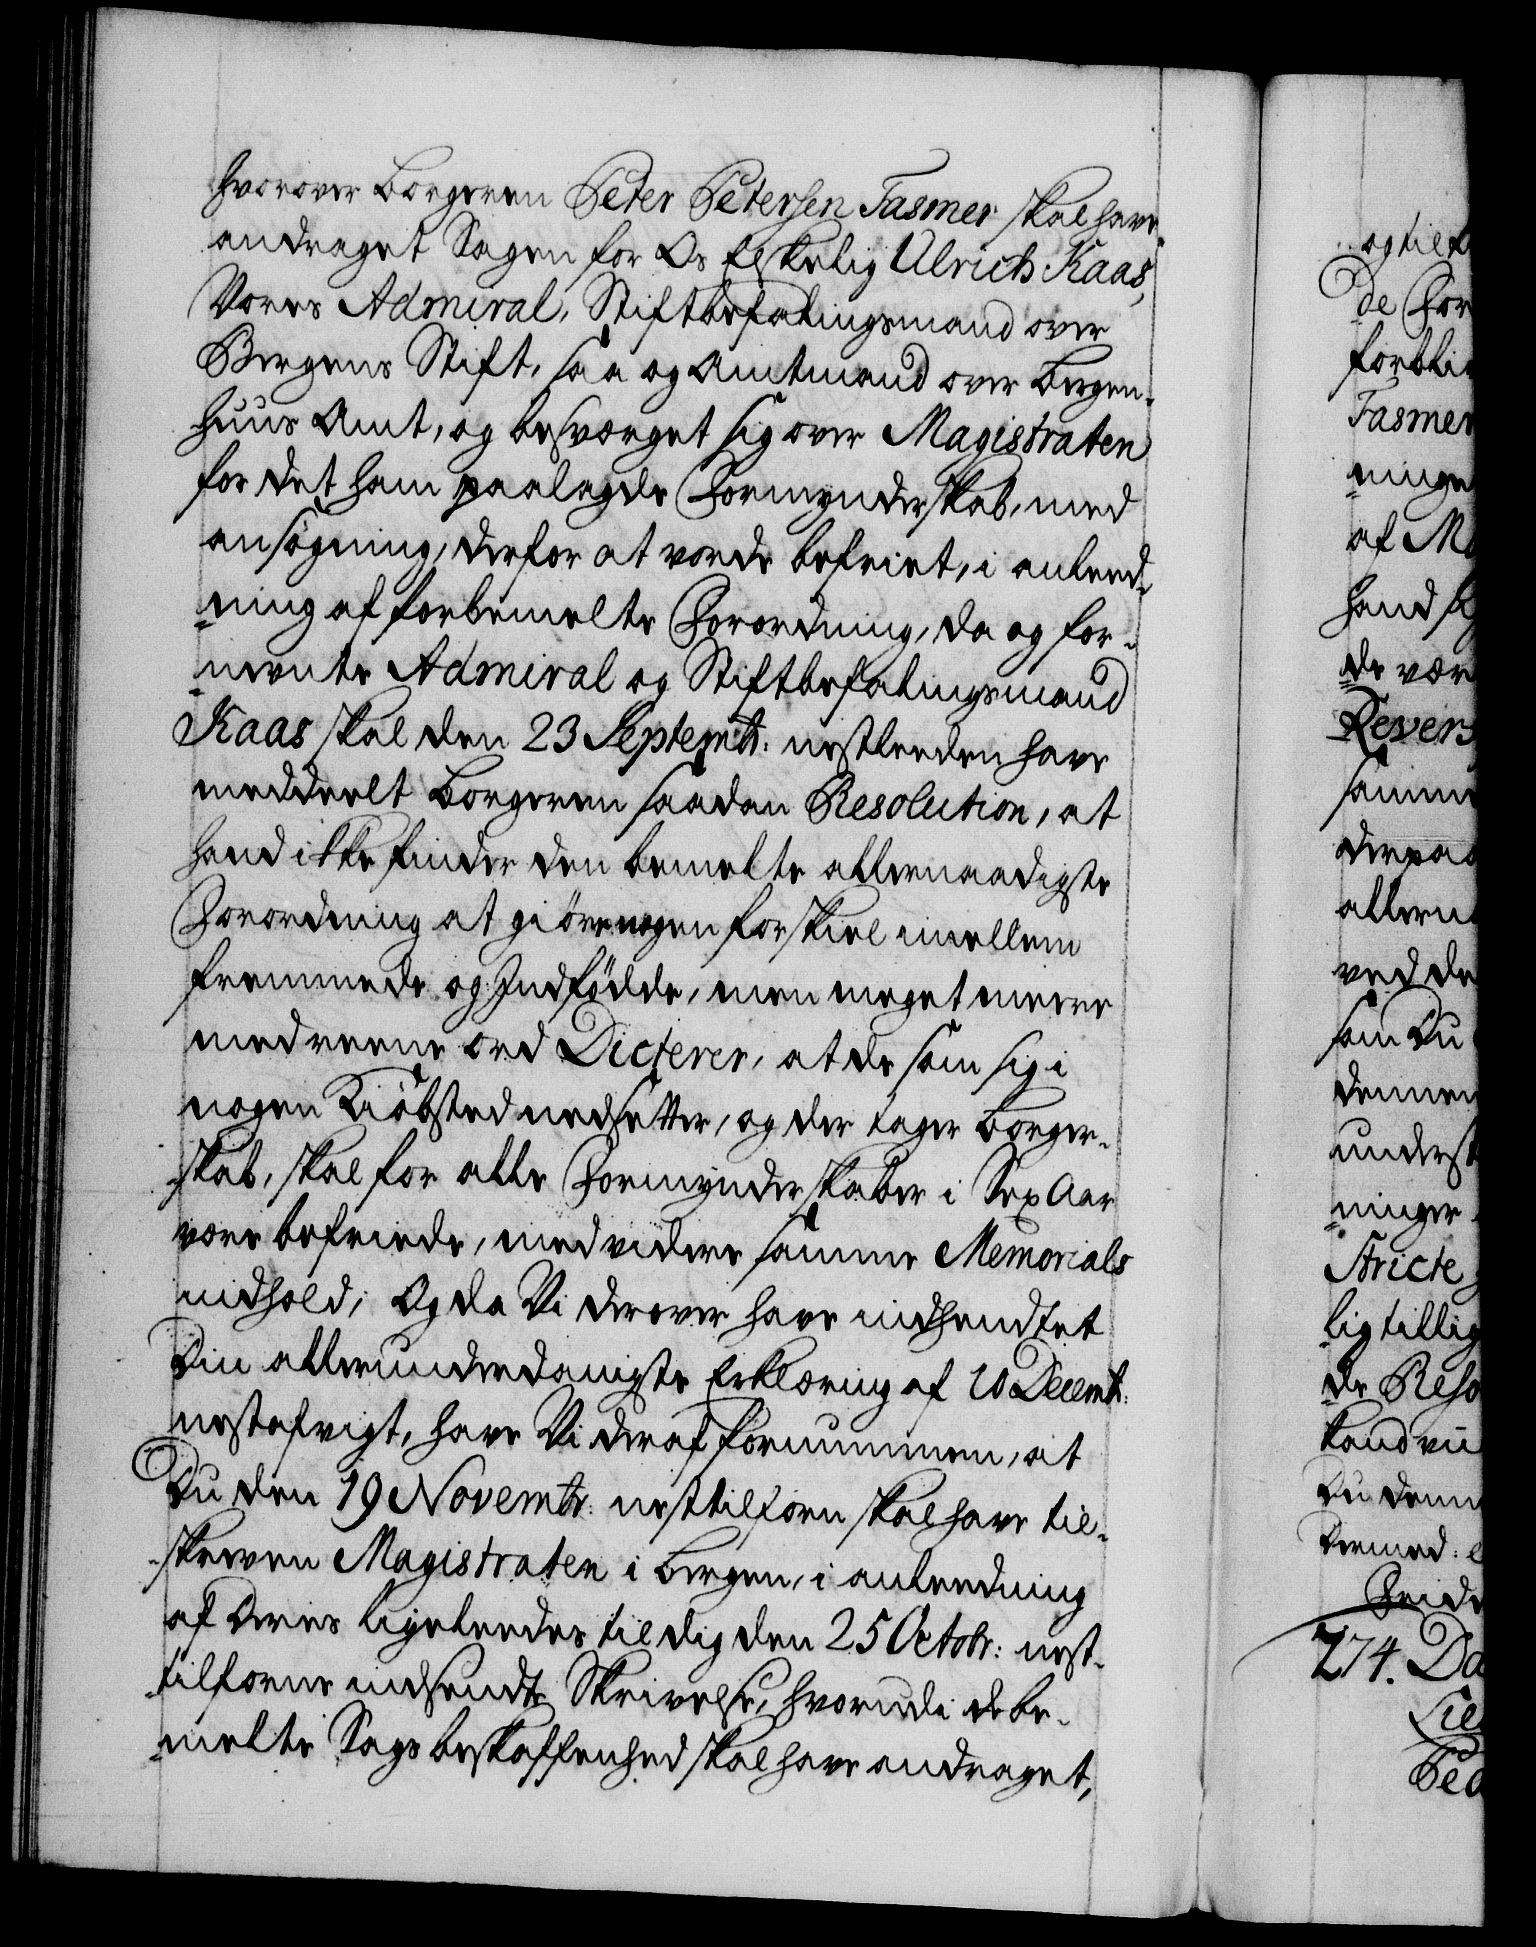 hvorover borgeren Peter Petersen Fasmer skal have
andraget Sagen for Os Elskelig Ulrich Kaas,
Vores Admiral, Stiftbefalingsmand over
Bergens Stift, saa og Amtmand over Bergen-
huus Amt, og besværget sig over Magistraten
for det ham paalagde Formynderskab, med
ansøgning, derfor at vorde befriet, i anleed-
-ning af forbemelte Forordning, da og for-
-nevnte Admiral og Stiftbefalingsmand
Kaas skal den 23 Septembr: nestleeden have
meddeelt borgeren saadan Resolution, at
hand ikke finder den bemelte allernaadigste
Forordning at giöre nogen forskiel imellem
fremmede og Indfødde, men meget meere
med reene ord Dicterer, at de som sig i
nogen Kiöbsted nedsetter, og der tager borger-
-skab, skal for alle Formynderskaber i Sex Aar
være befriede, med videre samme Memorials
indhold; Og da Vi derover have indhendtet
Din allerunderdanigste Erklæring af 10 Decembr:
nestafvigt, have Vi deraf fornummen, at
Du den 19 Novembr: nesttilforn skal have til-
-skreven Magistraten i bergen, i anleedning
af deres ligeleedes til dig den 25 Octobr: nest-
-tilforne indsendte Skrivelse, hvorudi de be-
-melte Sags beskaffenhed skal have andraget,
og til
de For
forbli
Fasmer
-ninge
af Ma
hand
de vær
Revers
samme
derpaa
allern
ved de
som Du
dennem
underst
-ninger
Stricte
lig tillig
de Reso
Du denn
dermed:
274. Da